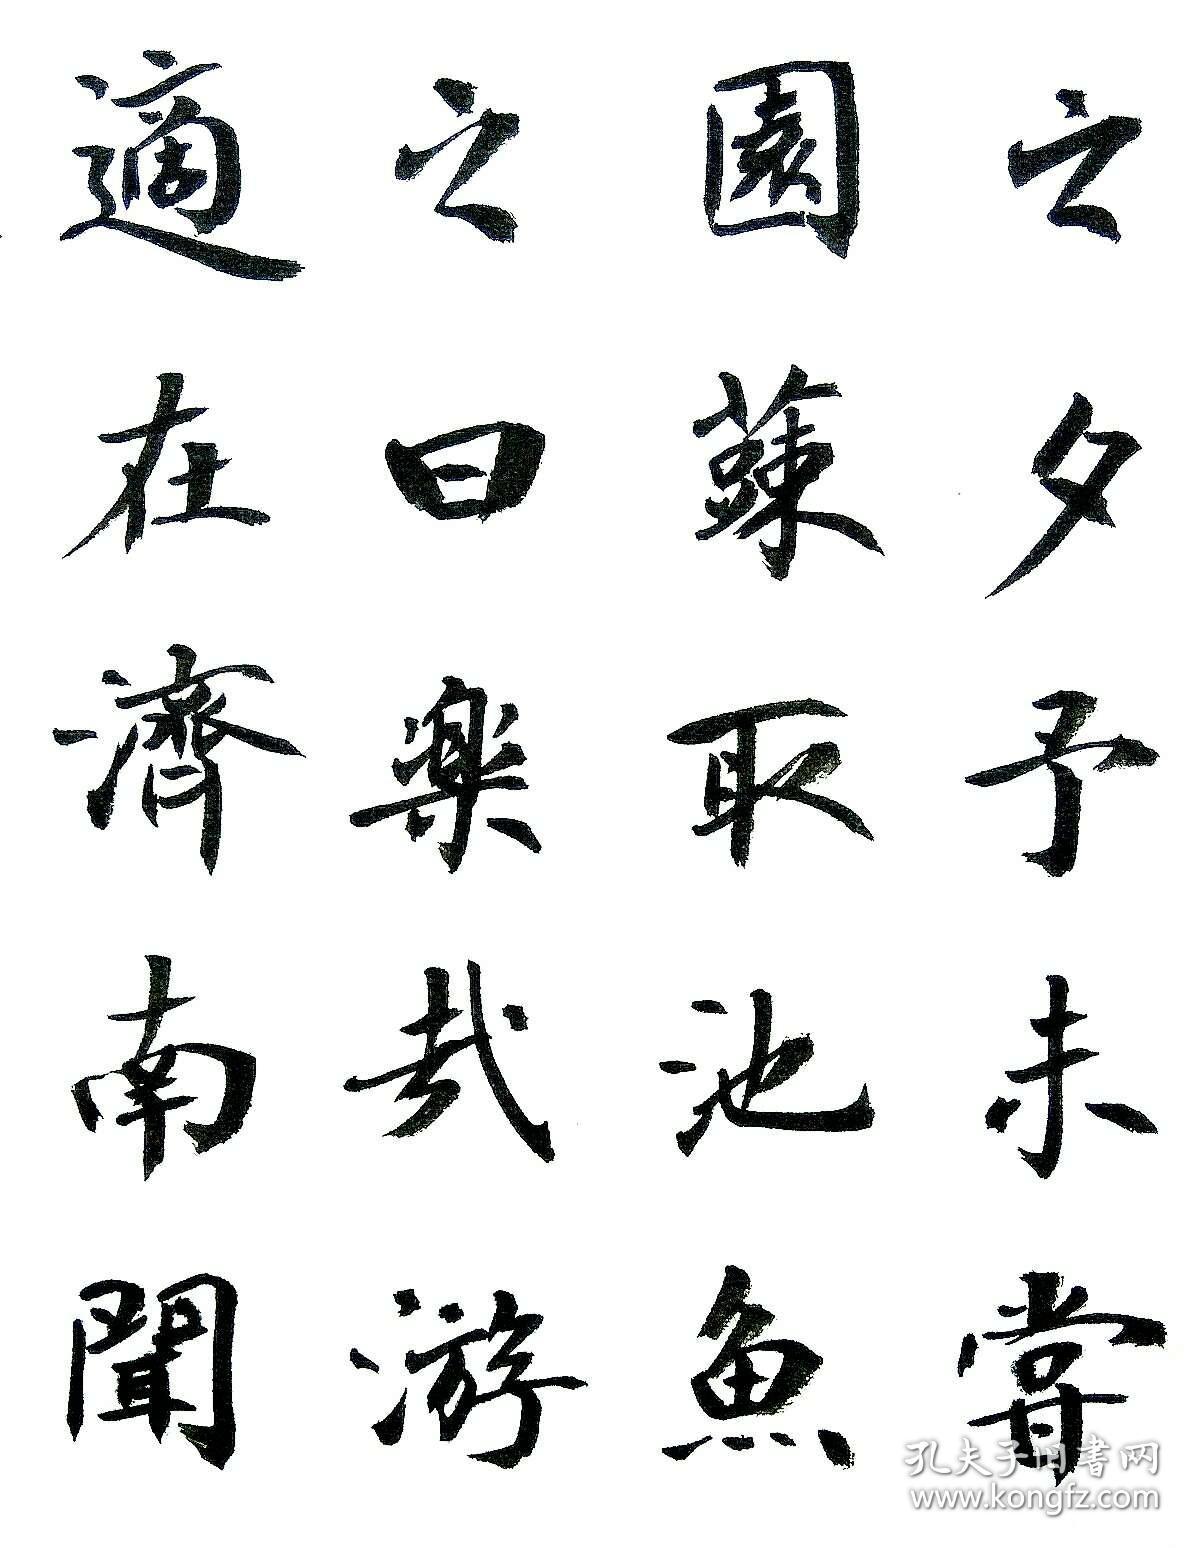 之夕予未嘗
園蔬取池魚
之曰樂哉游
適在濟南聞
孔夫子旧书网
www.kongfz.com